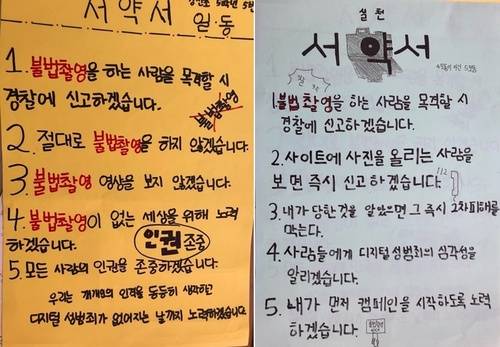 서약서
5학년 5반
일동
1. 불법촬영을 하는 사람을 목격할 시
경찰에 신고하겠습니다.
불법촬영
2. 절대로 불법촬영을 하지 않겠습니다.
3. 불법촬영 영상을 보지 않겠습니다.
4. 불법촬영이 없는 세상을 위해 노력
하겠습니다.
인권 존중
5. 모든 사람의 인권을 존중하겠습니다.
우리는 개개인의 인격을 동등히 생각하고
디지털 성범죄가 없어지는 날까지 노력하겠습니다.
실천
서약서
찰칵
1. 불법촬영을 하는 사람을 목격할 시
경찰에 신고하겠습니다.
2. 사이트에 사진을 올리는 사람을
보면 즉시 신고하겠습니다.
112
3. 내가 당한것을 알았으면 그 즉시 2차피해를
막는다.
4. 사람들에게 디지털 성범죄의 심각성을
알리겠습니다.
5. 내가 먼저 캠페인을 시작하도록 노력
하겠습니다.